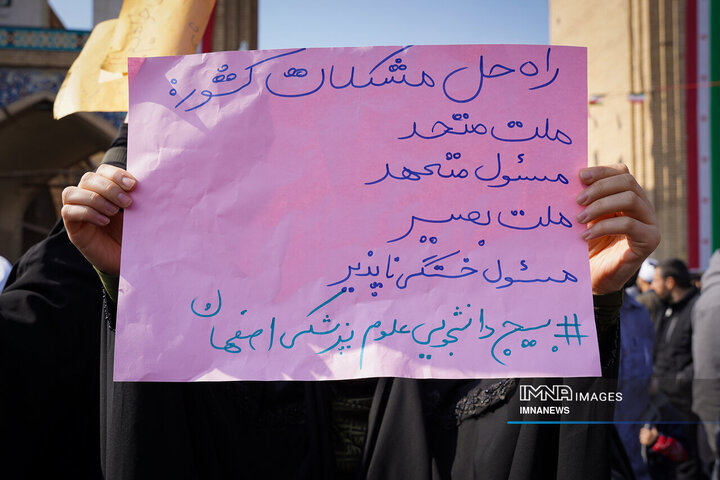 راه حل مشکلات کشور:
ملت متحد
مسئول متعهد
ملت بصیر
مسئول خستگی ناپذیر
#بسیج دانشجویی علوم پزشکی اصفهان
IMNA IMAGES
IMNANEWS